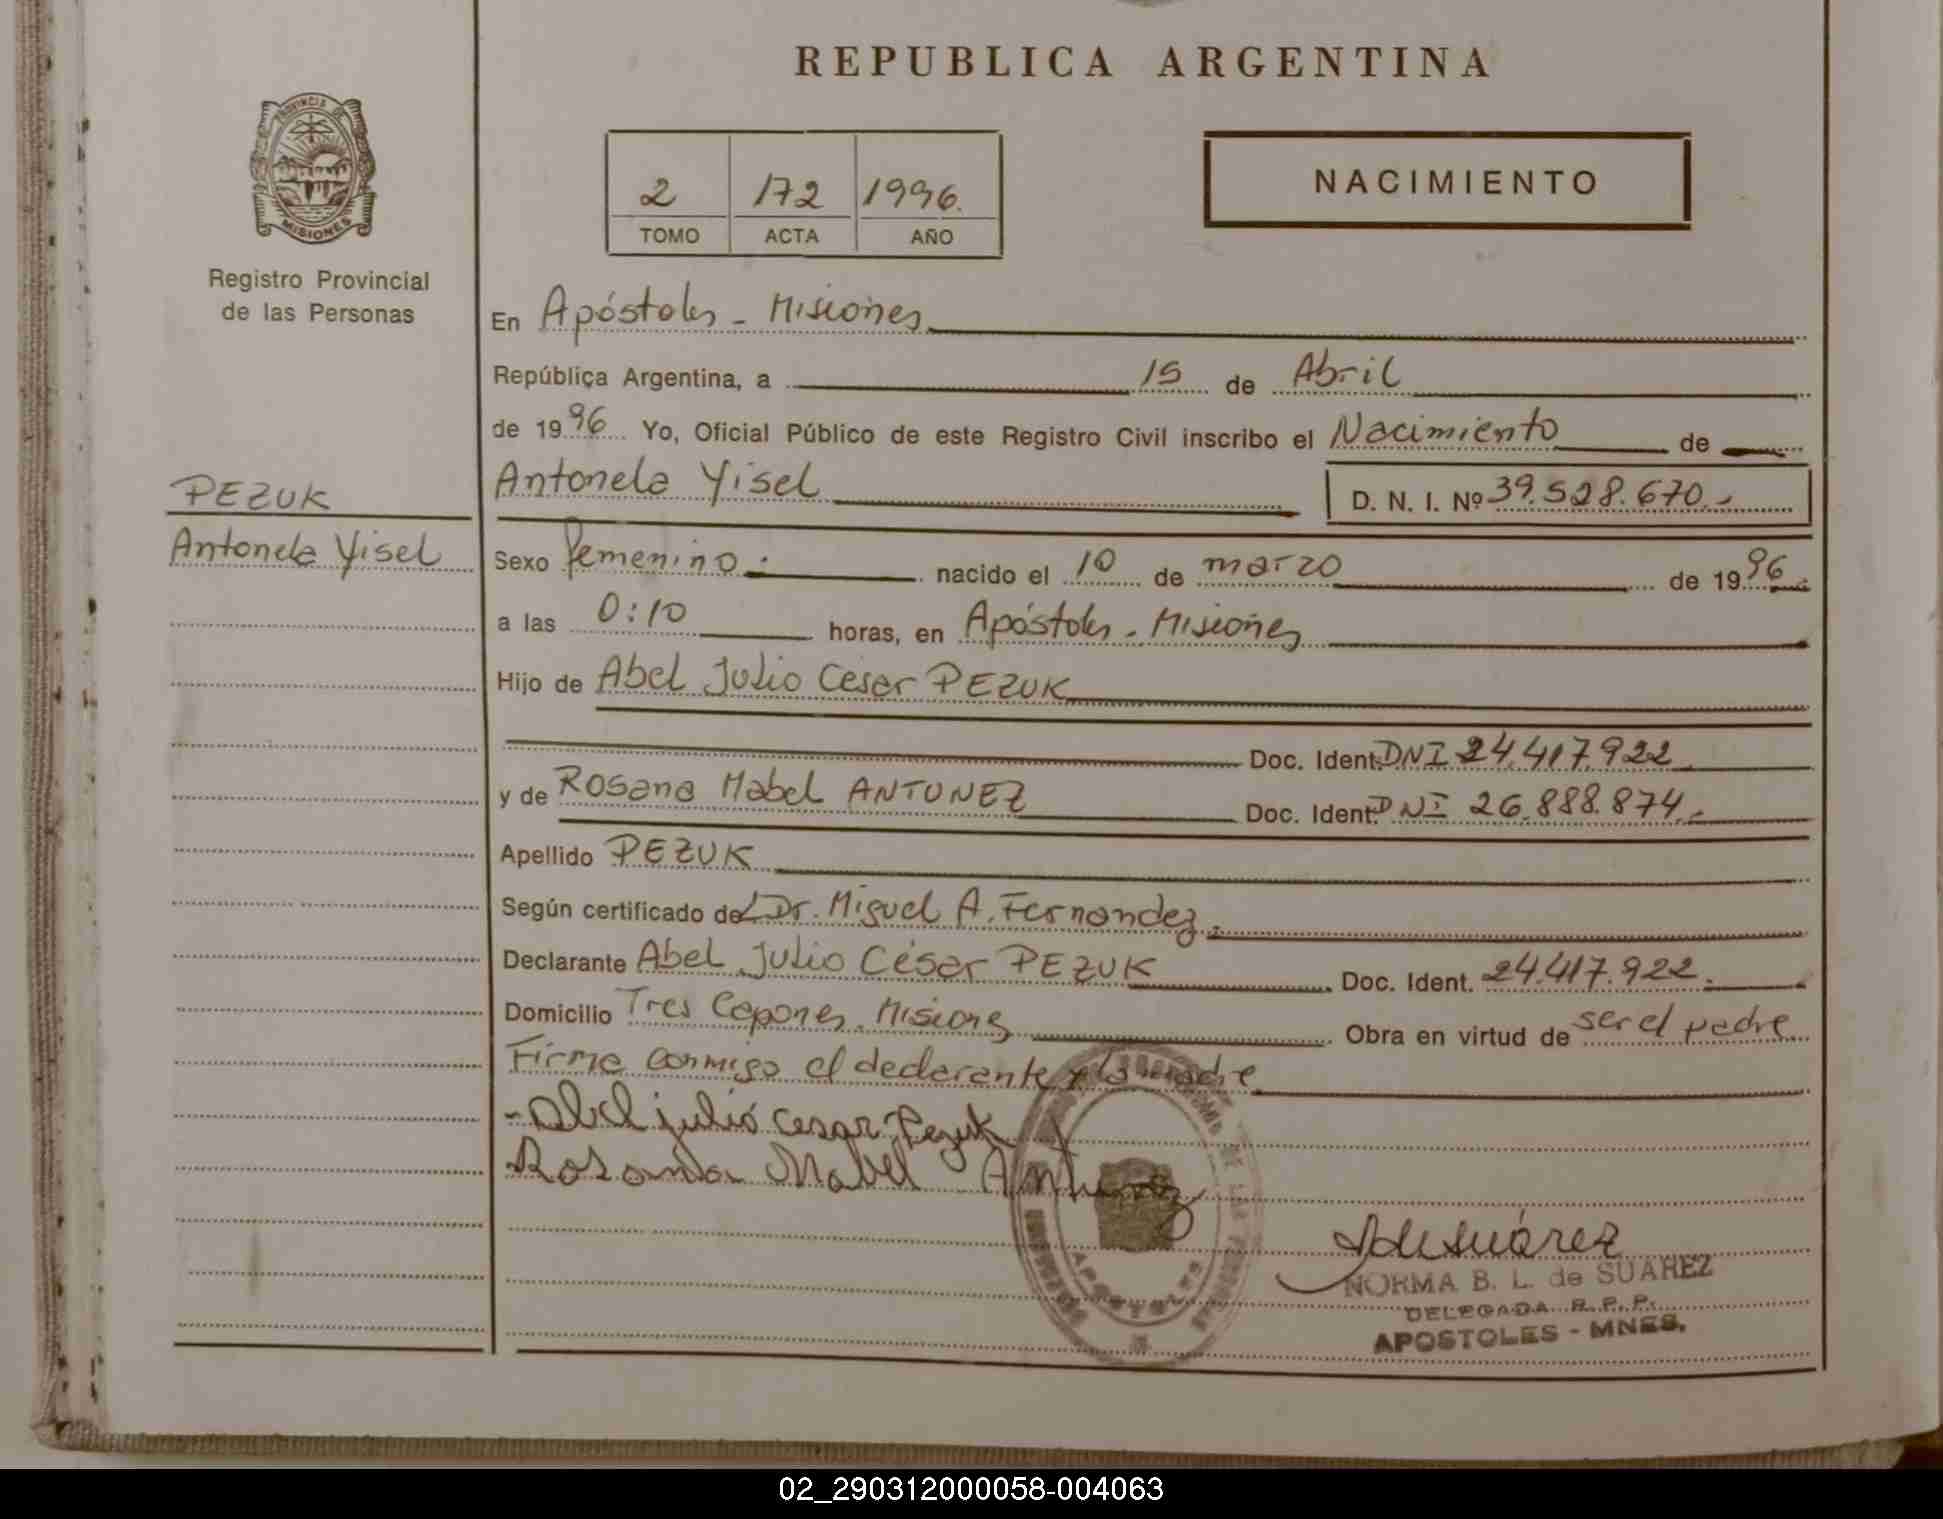 REPUBLICA ARGENTINA
PROVINCIA DE
MISIONES
Registro Provincial
de las Personas
2 172 1996.
TOMO ACTA AÑO
NACIMIENTO
En Apóstoles - Misiones
República Argentina, a 15 de Abril
de 1996 Yo, Oficial Público de este Registro Civil inscribo el Nacimiento de
PEZUK
Antonela Yisel
Antonela Yisel D. N. I. Nº 39.528.670.-
Sexo femenino. nacido el 10 de marzo de 1996.
a las 0:10 horas, en Apóstoles - Misiones
Hijo de Abel Julio César PEZUK
Doc. Ident. DNI 24.417.922
y de Rosana Mabel ANTUNEZ Doc. Ident. DNI 26.888.874.-
Apellido PEZUK
Según certificado del Dr. Miguel A. Fernandez.
Declarante Abel Julio César PEZUK Doc. Ident. 24.417.922.
Domicilio Tres Capones, Misiones Obra en virtud de ser el padre
Firma conmigo el declarante y la madre
- Abel julio cesar Pezuk
Rosana Mabel Antunez
APOSTOLES
NORMA B. L. de SUAREZ
DELEGADA R. P. P.
APOSTOLES - MNES.
02_290312000058-004063